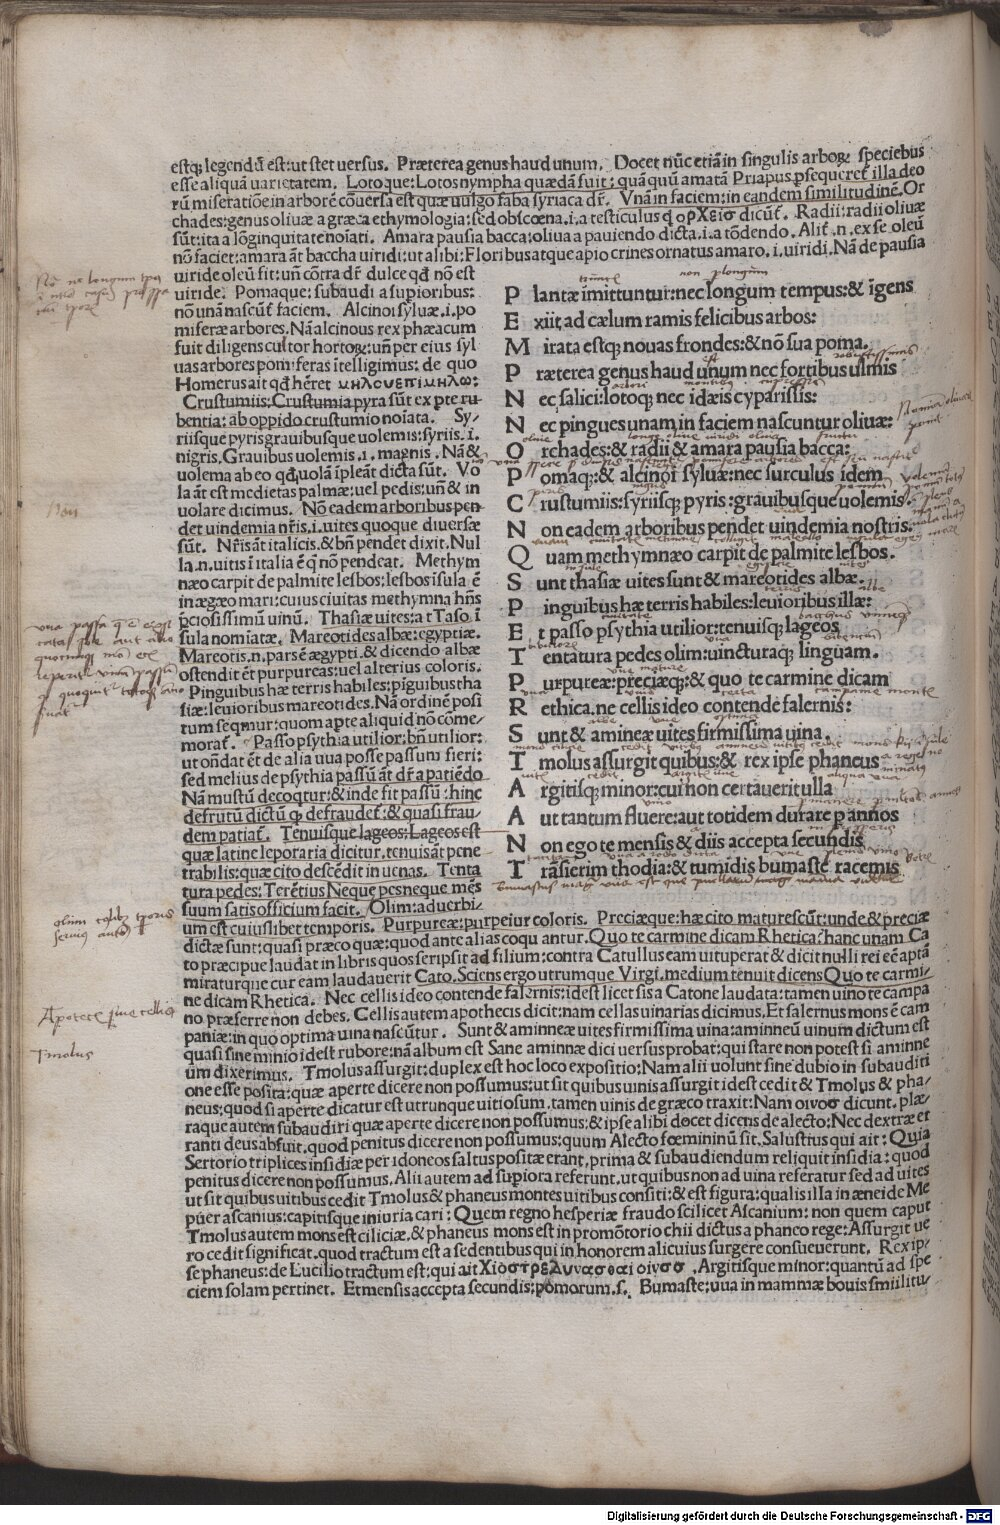 estq; legendū est: ut stet uersus. Præterea genus haud unum. Docet nūc etiā in singulis arboꝝ speciebus
esse aliquā uarietatem. Lotoque: Lotos nympha quædā fuit: quā quū amatā Priapus ꝑsequeret̃ illa deo
rū miseratiōe in arborē cōuersa est quæ uulgo faba syriaca dr̃. Vnā in faciem: in eandem similitudinē. Or
chades: genus oliuæ a græca ethymologia: sed obscœna .i. a testiculus ꝗ ορχεισ dicūt̃. Radii: radii oliuæ
sūt: ita a lōginquitate noīati. Amara pausia bacca: oliua a pauiendo dicta .i. a tōdendo. Alit̃ .n. ex se oleū
nō faciet: amara āt baccha uiridi: ut alibi: Floribus atque apio crines ornatus amaro .i. uiridi. Nā de pausia
uiride oleū fit: un̄ cōtra dr̃ dulce qđ nō est
uiride. Pomaque: subaudi a supioribus:
nō unā nascūt̃ faciem. Alcinoi syluæ .i. po
miferæ arbores. Nā alcinous rex phæacum
fuit diligens cultor hortoꝝ: un̄ per eius syl
uas arbores pomiferas ītelligimus: de quo
Homerus ait qđ hēret μηλουεπιμηλω:
Crustumiis: Crustumia pyra sūt ex pte ru-
bentia: ab oppido crustumio noīata. Sy-
riisque pyris grauibusque uolemis: syriis .i.
nigris. Grauibus uolemis .i. magnis. Nā &
uolema ab eo qđ uolā īpleāt dicta sūt. Vo
la āt est medietas palmæ: uel pedis: un̄ & in
uolare dicimus. Nō eadem arboribus pen-
det uindemia nr̃is .i. uites quoque diuersæ
sūt. Nr̃is āt italicis. & bn̄ pendet dixit. Nul
la .n. uitis ī italia ē ꝗ nō pendeat. Methym
næo carpit de palmite lesbos: lesbos īsula ē
in ægæo mari: cuius ciuitas methymna hn̄s
pciosissimū uinū. Thasiæ uites: a t Taso ī
sula nomīatæ. Mareotides albæ: egyptiæ.
Mareotis .n. pars ē ægypti. & dicendo albæ
ostendit ēt purpureas: uel alterius coloris.
Pinguibus hæ terris habiles: pīguibus tha
siæ: leuioribus mareotides. Nā ordinē posi
tum seqmur: quom apte aliquid nō cōme-
morat̃. Passo psythia utilior: bn̄ utilior:
ut on̄dat ēt de alia uua posse passum fieri:
sed melius de psythia passū āt dr̃ a patiēdo
Nā mustū decoqtur: & inde fit passū: hinc
defrutū dictū ꝙ defraudet̃: & quasi frau-
dem patiat̃. Tenuisque lageos: Lageos est
quæ latine leporaria dicitur. tenuis āt pene
trabilis: quæ cito descēdit in uenas. Tenta
tura pedes: Terētius Neque pes neque mēs
suum satis officium facit. Olim: aduerbi-
P lantæ īmittuntur: nec longum tempus: & īgens
E xiit ad cælum ramis felicibus arbos:
M irata estq; nouas frondes: & nō sua poma.
P ræterea genus haud unum nec fortibus ulmis
N ec salici: lotoq; nec idæis cyparissis:
N ec pingues unam in faciem nascuntur oliuæ:
O rchades: & radii & amara pausia bacca:
P omaq; & alcinoi syluæ: nec surculus idem
C rustumiis: syriisq; pyris: grauibusque uolemis.
N on eadem arboribus pendet uindemia nostris:
Q uam methymnæo carpit de palmite lesbos.
S unt thasiæ uites sunt & mareotides albæ.
P inguibus hæ terris habiles: leuioribus illæ:
E t passo psythia utilior: tenuisq; lageos
T entatura pedes olim: uincturaq; linguam.
P urpureæ: preciæq;: & quo te carmine dicam
R ethica. ne cellis ideo contende falernis:
S unt & amineæ uites firmissima uina.
T molus assurgit quibus: & rex ipse phaneus
A rgitisq; minor: cui non certauerit ulla
A ut tantum fluere: aut totidem durare p annos
N on ego te mensis & diis accepta secundis
T rāsierim rhodia: & tumidis bumaste racemis
um est cuiuslibet temporis. Purpureæ: purpei ur coloris. Preciæque: hæ cito maturescūt: unde & preciæ
dictæ sunt: quasi præcoquæ: quod ante alias coquantur. Quo te carmine dicam Rhetica: hanc unam Ca
to præcipue laudat in libris quos scripsit ad filium: contra Catullus eam uituperat & dicit nulli rei eē aptā
miraturque cur eam laudauerit Cato. Sciens ergo utrumque Virgi. medium tenuit dicens Quo te carmi-
ne dicam Rhetica. Nec cellis ideo contende falernis: idest licet sis a Catone laudata: tamen uino te campa
no præferre non debes. Cellis autem apothecis dicit: nam cellas uinarias dicimus. Et falernus mons ē cam
paniæ: in quo optima uina nascūtur. Sunt & aminneæ uites firmissima uina: aminneū uinum dictum est
quasi sine minio idest rubore: nā album est Sane aminnæ dici uersus probat: qui stare non potest si aminne
um dixerimus. Tmolus assurgit: duplex est hoc loco expositio: Nam alii uolunt sine dubio in subauditi
one esse posita: quæ aperte dicere non possumus: ut sit quibus uinis assurgit idest cedit & Tmolus & pha-
neus: quod si aperte dicatur est utrunque uitiosum. tamen uinis de græco traxit: Nam οινοσ dicunt. plæ-
raque autem subaudiri quæ aperte dicere non possumus: & ipse alibi docet dicens de alecto: Nec dextræ er
ranti deus abfuit. quod penitus dicere non possumus: quum Alecto fœmininū sit. Salustius qui ait: Quia
Sertorio triplices insidiæ per idoneos saltus positæ erant. prima & subaudiendum reliquit insidia: quod
penitus dicere non possumus. Alii autem ad supiora referunt. ut quibus non ad uina referatur sed ad uites
ut sit quibus uitibus cedit Tmolus & phaneus montes uitibus consiti: & est figura: qualis illa in æneide Me
puer ascanius: capitisque iniuria cari: Quem regno hesperiæ fraudo scilicet Ascanium: non quem caput
Tmolus autem mons est ciliciæ, & phaneus mons est in promōtorio chii dictus a phaneo rege: Assurgit ue
ro cedit significat. quod tractum est a sedentibus qui in honorem alicuius surgere consueuerunt. Rex ip-
se phaneus: de Lucilio tractum est: qui ait Χιοστρελυνασθαι οινοσ. Argitisque minor: quantū ad spe
ciem solam pertinet. Et mensis accepta secundis: pomorum .s. Bumaste: uua in mammæ bouis similitu-
Apotece siue cellis
Tmolus
Digitalisierung gefördert durch die Deutsche Forschungsgemeinschaft - DFG